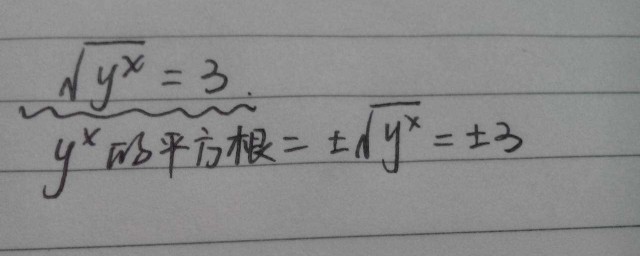 √(y^x) = 3.
y^x 的平方根 = ±√(y^x) = ±3